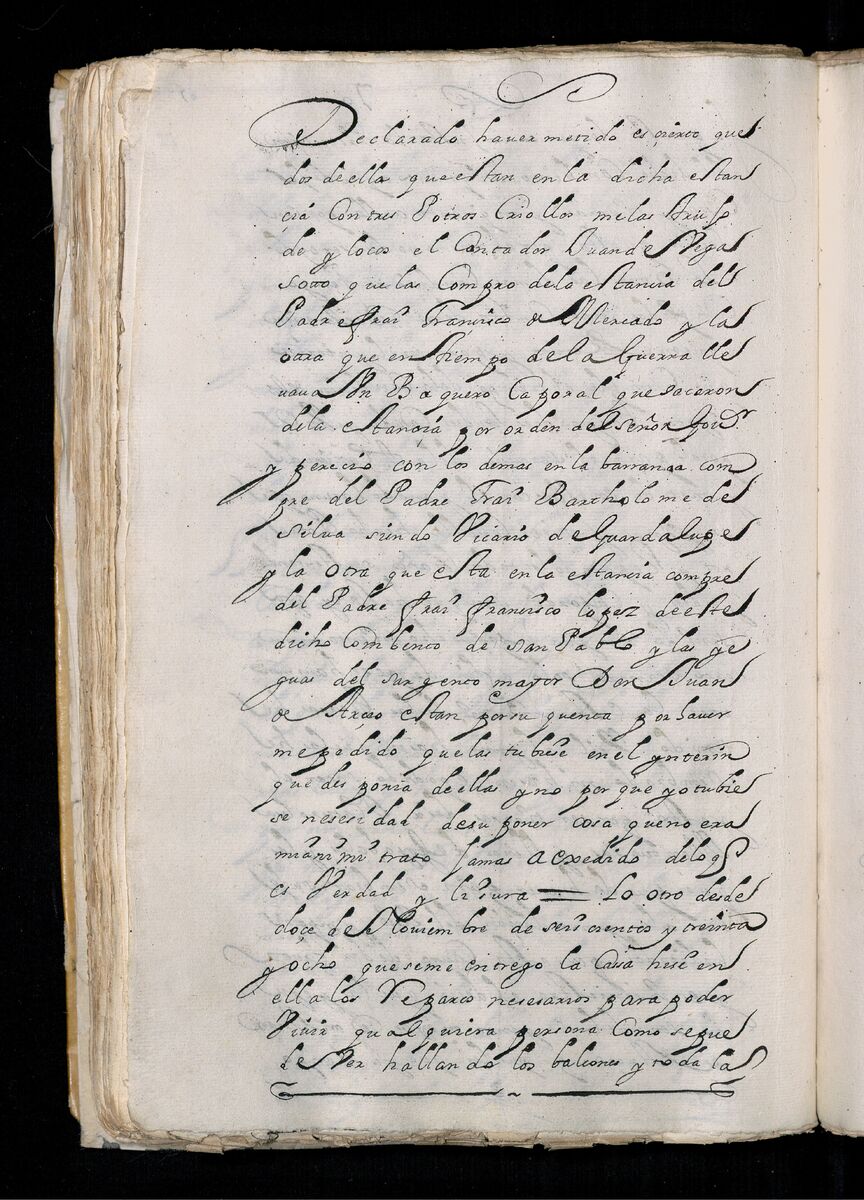 Declarado haver metido es çierto que
dos de ella que estan en la dicha estan
cia Con tres Potros Criollos me las
de y locos el Contador Juan de Vega
soto que las Compro de la estancia del
Padre frai Francisco de Mercado y la
otra que en tiempo de la Guerra lle
uaua Un Baquero Caporal que sacaron
de la estançia por orden del señor Gou.r
y pereçio con los demas en la barranca com
pre del Padre Frai Bartholome de
silua siendo Vicario de Guardalupe
y la otra que esta en la estancia compre
del Padre frai françisco lopez de este
dicho Combento de san Pablo y las ye
guas del sargento mayor Don Juan
de Arçeo estan por su quenta por haver
me pedido que las tubiese en el ynterin
que desponia de ellas y no por que yo tubie
se nesesidad de suponer cosa que no era
mia ni mi trato Jamas a exedido de lo q
es Verdad y lisura = Lo otro desde
doçe de Nouiembre de seis cientos y treinta
y ocho que se me entrego la Cassa hise en
ella los Reparos nesesarios para poder
Viuir qualquiera persona Como se pue
de Ver hallando los balcones y toda la